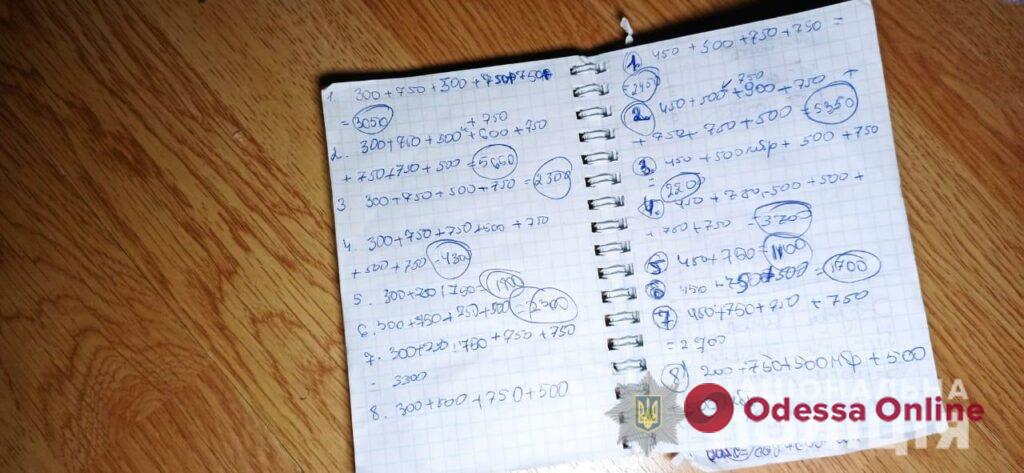 1. 300+750+500+750+750
=3050
+750
2. 300+750+500+600+750
+750+750+500=5650
3. 300+750+500+750=2300
4. 300+750+750+500+750
+500+750=4300
5. 300+750+750=
6. 300+750+750+500=2300
7. 300+750+750+750+750
- 3300
8. 300+500+750+500
1. 450+500+750+750=
=2450
750
2. 450+500+900+750+
+750+750+500=5350
3. 450+500+500+750
=2200
4. 450+750+500+500+
+750+750=3700
5 450+750=
6 450+750+500=1700
7 450+750+750+750
=2700
8) 200+750+500+500
Odessa Online